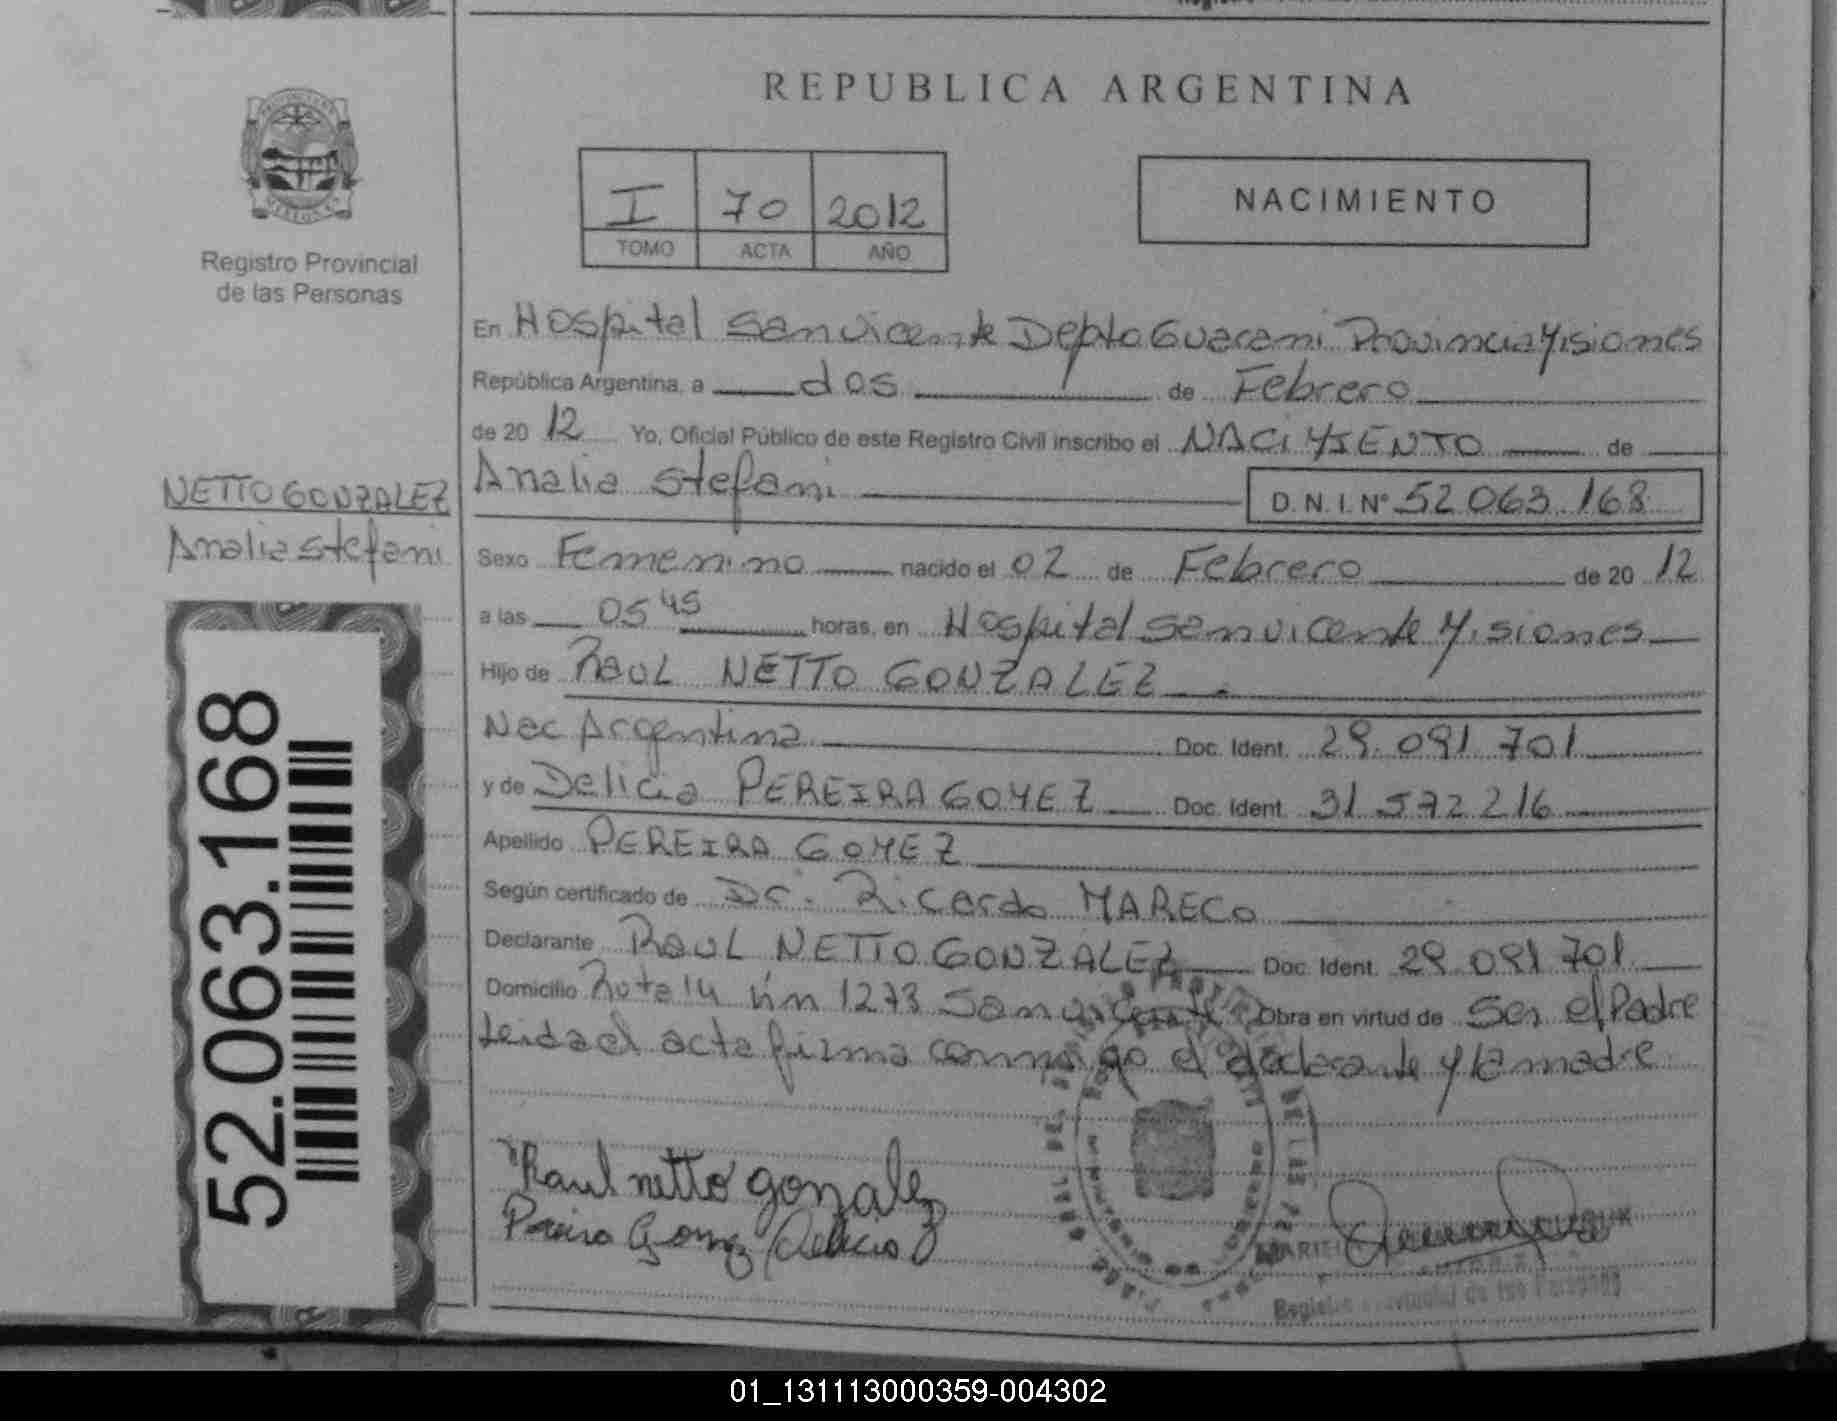 REPUBLICA ARGENTINA
I 70 2012
TOMO ACTA AÑO
NACIMIENTO
Registro Provincial
de las Personas
NETTO GONZALEZ
Analia Stefani
52.063.168
En Hospital San vicente Depto Guarani Provincia Misiones
República Argentina, a dos de Febrero
de 20 12 Yo, Oficial Público de este Registro Civil inscribo el NACIMIENTO de
Analia Stefani D. N. I. Nº 52 063 168
Sexo Femenino nacido el 02 de Febrero de 20 12
a las 05 45 horas, en Hospital San vicente Misiones
Hijo de Raul NETTO GONZALEZ
Nac Argentina Doc. Ident. 29 091 701
y de Delicia PEREIRA GOMEZ Doc. Ident. 31 572 216
Apellido PEREIRA GOMEZ
Según certificado de Dr. Ricardo MARECO
Declarante Raul NETTO GONZALEZ Doc. Ident. 29 091 701
Domicilio Ruta 14 km 1273 San vicente Obra en virtud de Ser el Padre
Leida el acta firma conmigo el declarante y la madre
Raul netto gonzalez
Pereira Gomez Delicia
Registro Provincial de las Personas
01_131113000359-004302